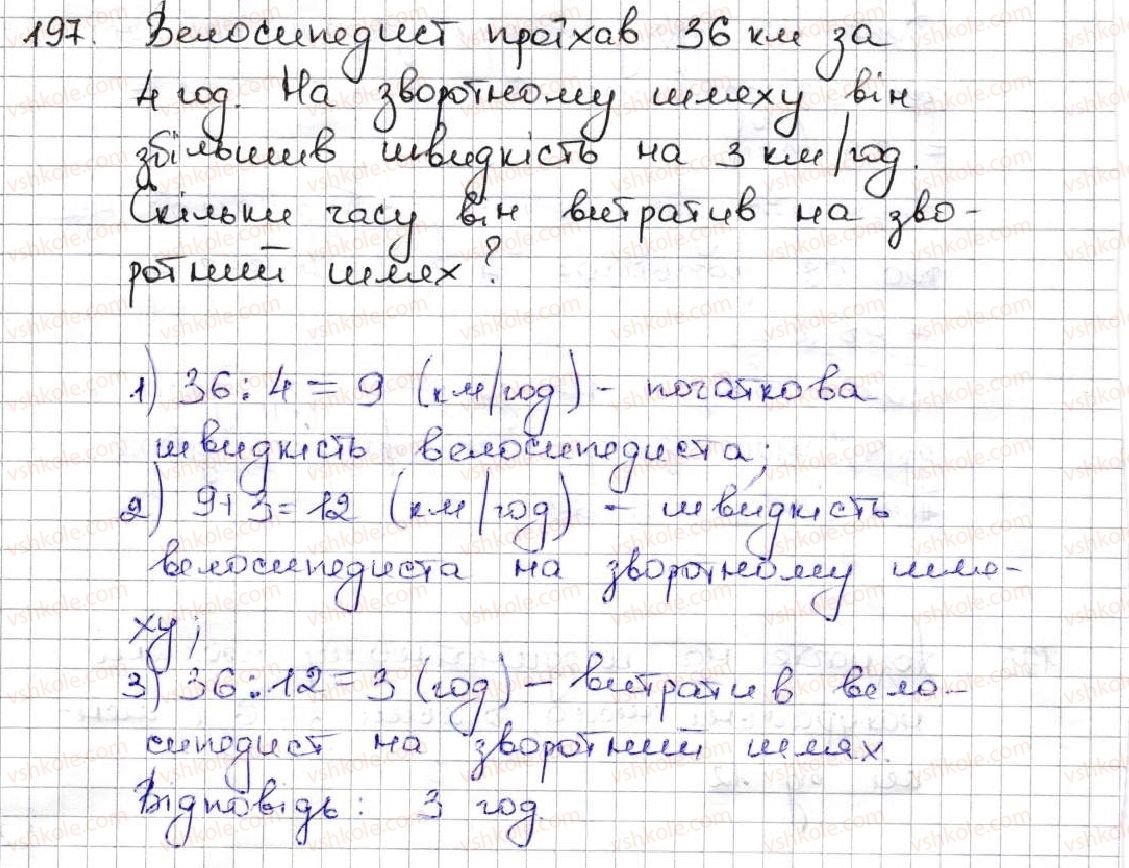 197. Велосипедист проїхав 36 км за
4 год. На зворотному шляху він
збільшив швидкість на 3 км/год.
Скільки часу він витратив на зво-
ротний шлях?
1) 36:4=9 (км/год) - початкова
швидкість велосипедиста;
2) 9+3=12 (км/год) - швидкість
велосипедиста на зворотному шля-
ху;
3) 36:12=3 (год) - витратив вело-
сипедист на зворотний шлях.
Відповідь: 3 год.